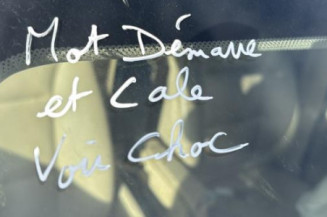 Mot Démarre
et Cale
Voir Choc